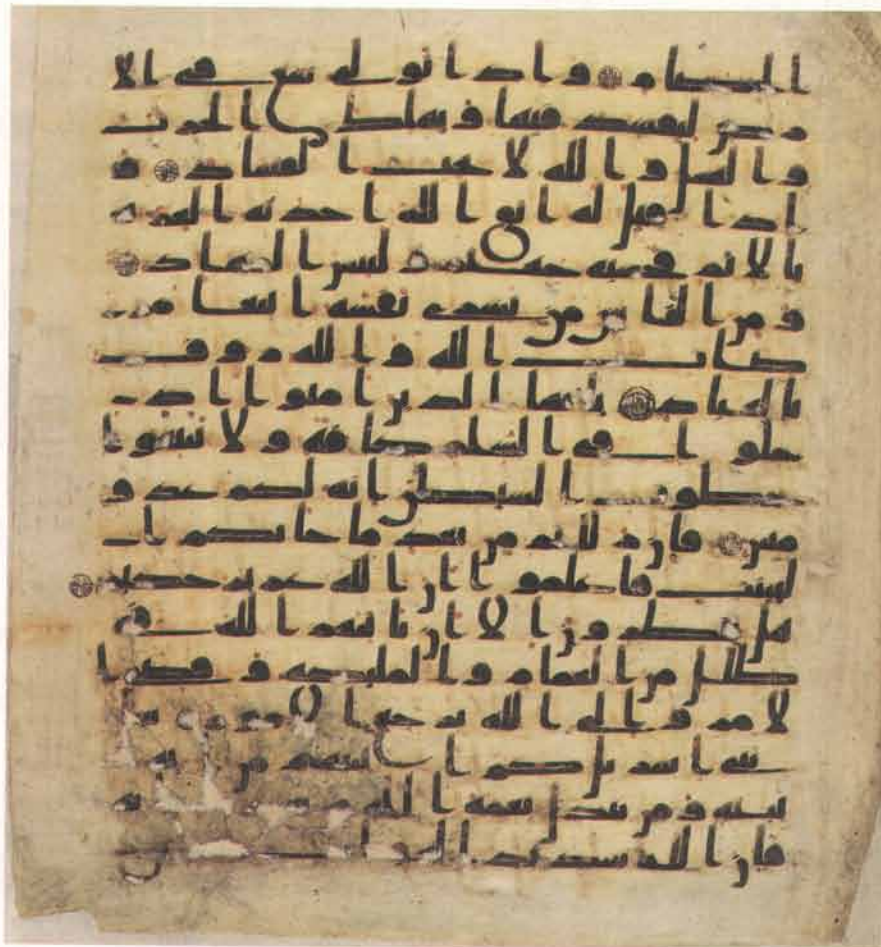 الخصام واذا تولى سعى فى الا
رض ليفسد فيها ويهلك الحرث
والنسل والله لا يحب الفساد و
اذا قيل له اتق الله اخذته العزه
بالاثم فحسبه جهنم ولبس المهاد
ومن الناس من يشرى نفسه ابتغا مر
ضات الله والله روف
بالعباد يايها الذين امنوا اد
خلوا فى السلم كافه ولا تتبعوا
خطوت الشيطن انه لكم عدو
مبين فان زللتم من بعد ما جاتكم ا
لبينت فاعلموا ان الله عزيز حكيم
هل ينظرون الا ان ياتيهم الله فى
ظلل من الغمام والمليكه وقضى ا
لامر والى الله ترجع الامور سل
بنى اسريل كم اتينهم من ايه
بينه ومن يبدل نعمه الله من
فان الله شديد العقاب